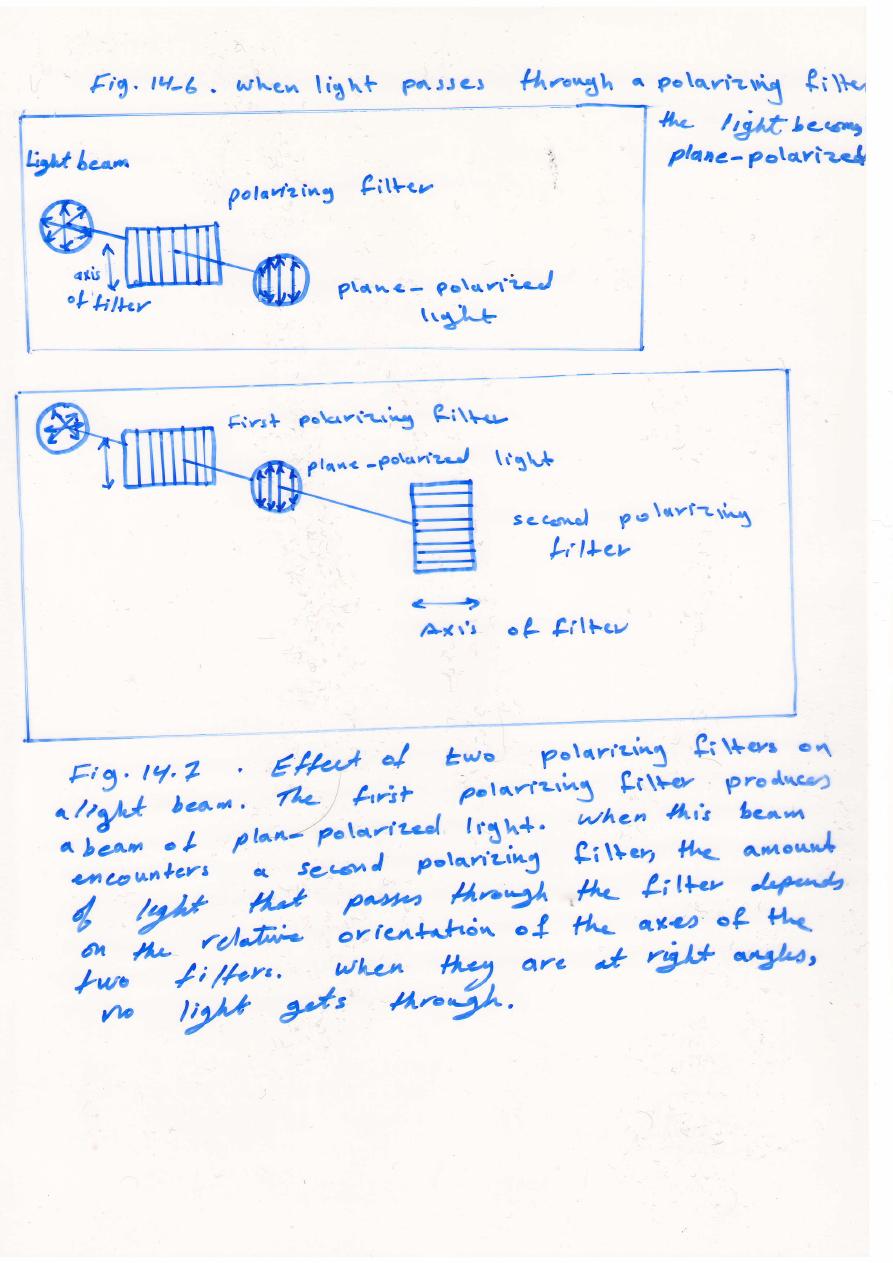 Fig. 14-6. when light passes through a polarizing filter
the light becomes
plane-polarized
Light beam
polarizing filter
axis
of filter
plane-polarized
light
First polarizing filter
plane-polarized light
second polarizing
filter
Axis of filter
Fig. 14.7 . Effect of two polarizing filters on
a light beam. The first polarizing filter produces
a beam of plan-polarized light. when this beam
encounters a second polarizing filter, the amount
of light that passes through the filter depends
on the relative orientation of the axes of the
two filters. when they are at right angles,
no light gets through.